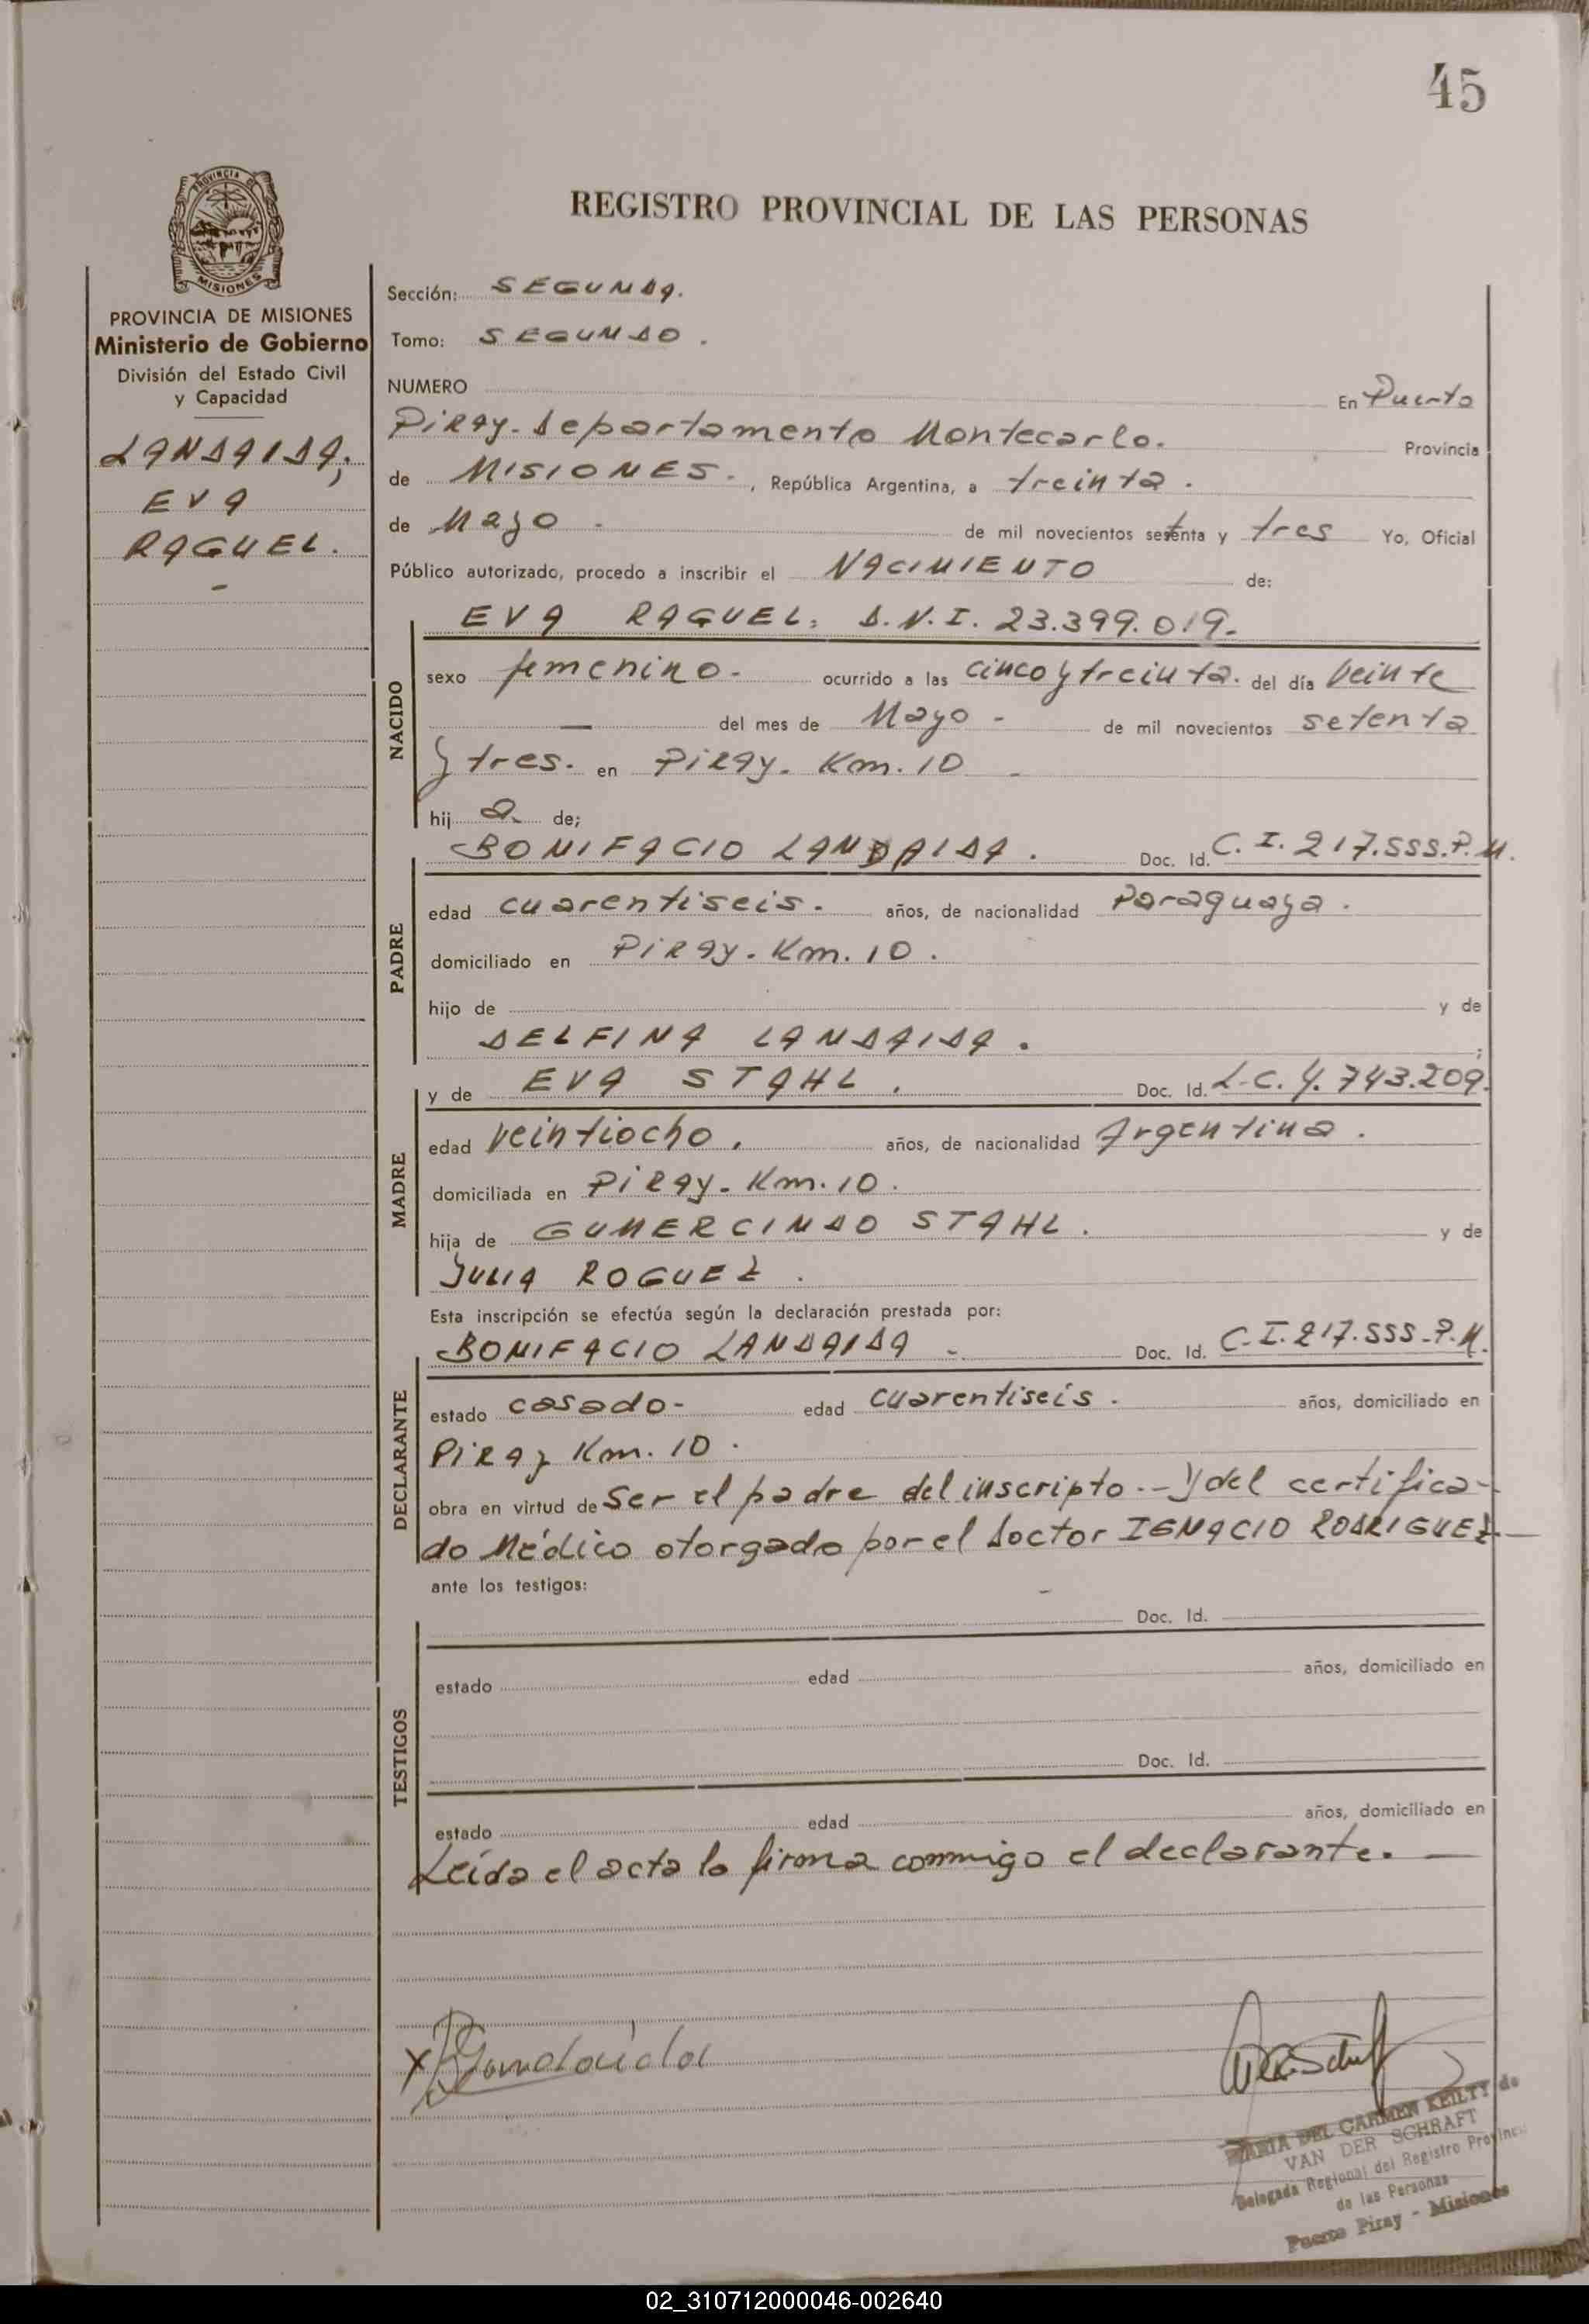 45
REGISTRO PROVINCIAL DE LAS PERSONAS
PROVINCIA DE
MISIONES
PROVINCIA DE MISIONES
Ministerio de Gobierno
División del Estado Civil
y Capacidad
LANDAIDA,
EVA
RAQUEL.
Sección: SEGUNDA.
Tomo: SEGUNDO.
NUMERO En Puerto
Piray. Departamento Montecarlo. Provincia
de MISIONES. , República Argentina, a treinta.
de Mayo - de mil novecientos setenta y tres Yo, Oficial
Público autorizado, procedo a inscribir el NACIMIENTO de:
EVA RAQUEL. D.N.I. 23.399.019.
NACIDO
sexo femenino. ocurrido a las cinco y treinta. del día veinte
— del mes de Mayo - de mil novecientos setenta
y tres. en Piray. Km. 10 -
hij a de;
BONIFACIO LANDAIDA. Doc. Id. C.I. 217.555.P.M.
PADRE
edad cuarentiseis. años, de nacionalidad Paraguaya.
domiciliado en Piray. Km. 10.
hijo de y de
DELFINA LANDAIDA. ;
y de EVA STAHL. Doc. Id. L.C. 4.743.209.
MADRE
edad veintiocho. años, de nacionalidad Argentina.
domiciliada en Piray. Km. 10.
hija de GUMERCINDO STAHL. y de
JULIA ROGUEZ.
Esta inscripción se efectúa según la declaración prestada por:
BONIFACIO LANDAIDA - Doc. Id. C.I. 217.555-P.M.
DECLARANTE
estado casado- edad cuarentiseis. años, domiciliado en
Piray Km. 10.
obra en virtud de ser el padre del inscripto.- y del certifica-
do Médico otorgado por el Doctor IGNACIO RODRIGUEZ—
ante los testigos: -
Doc. Id.
TESTIGOS
estado edad años, domiciliado en
Doc. Id.
estado edad años, domiciliado en
Leída el acta la firma conmigo el declarante. —
X BLandaida
MARIA DEL CARMEN KEILTY de
VAN DER SCHRAFT
Delegada Regional del Registro Provincial
de las Personas
Puerto Piray - Misiones
02_310712000046-002640